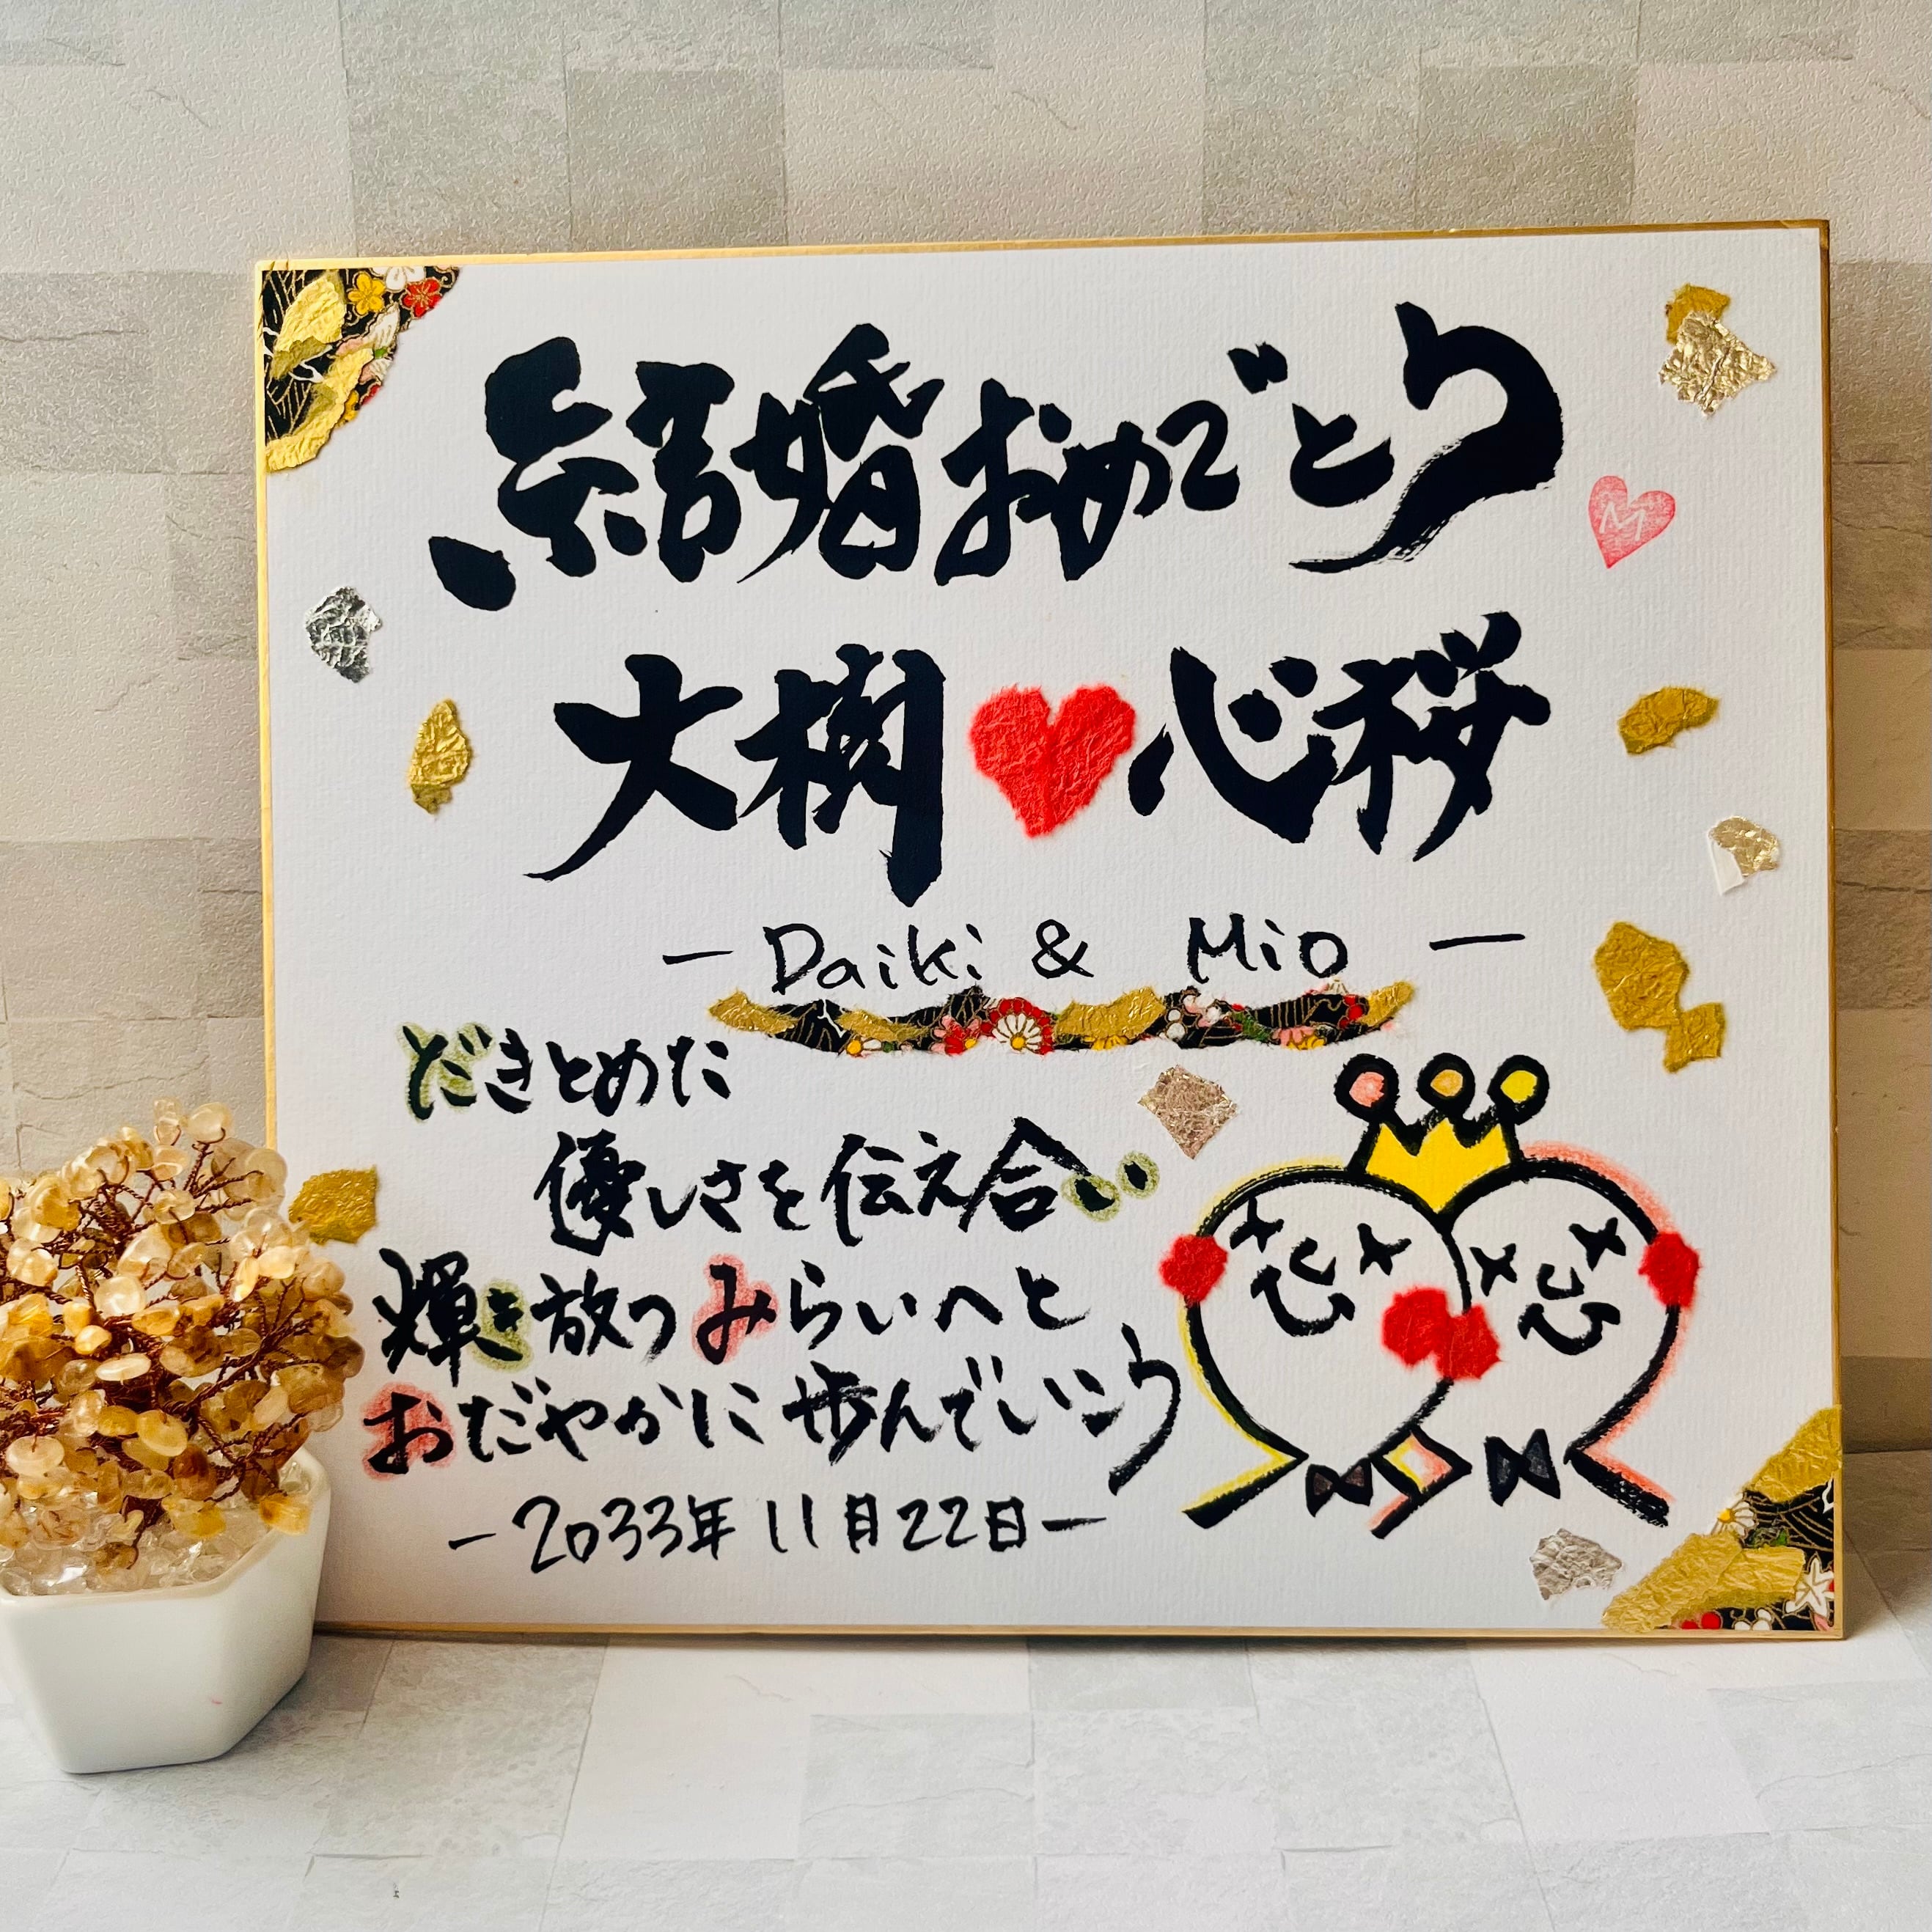 結婚おめでとう
M
大樹 心桜
-Daiki & Mio-
だきとめた
優しさを伝え合い
輝き放つみらいへと
おだやかに歩んでいこう
-2033年11月22日-